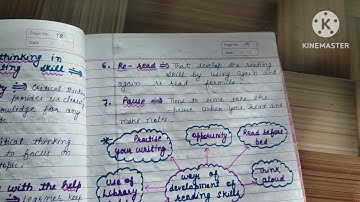 Page No. 18
Date
thinking in
ting skill ⇒
Critical thinking
provides us clear
knowledge for any
itical thinking
to focus on
topic.
with the help
learner keep
Page No. 19
Date
6. Re-read ⇒ That develop the reading
skill by using again and
again re-read formula.
7. Pause ⇒ Time to time take the
pause when you read and
make notes.
Practice
your writing
Opportunity
Read before
bed
Think
Aloud
Use of
Library
ways of
development of
reading skill
KINEMASTER